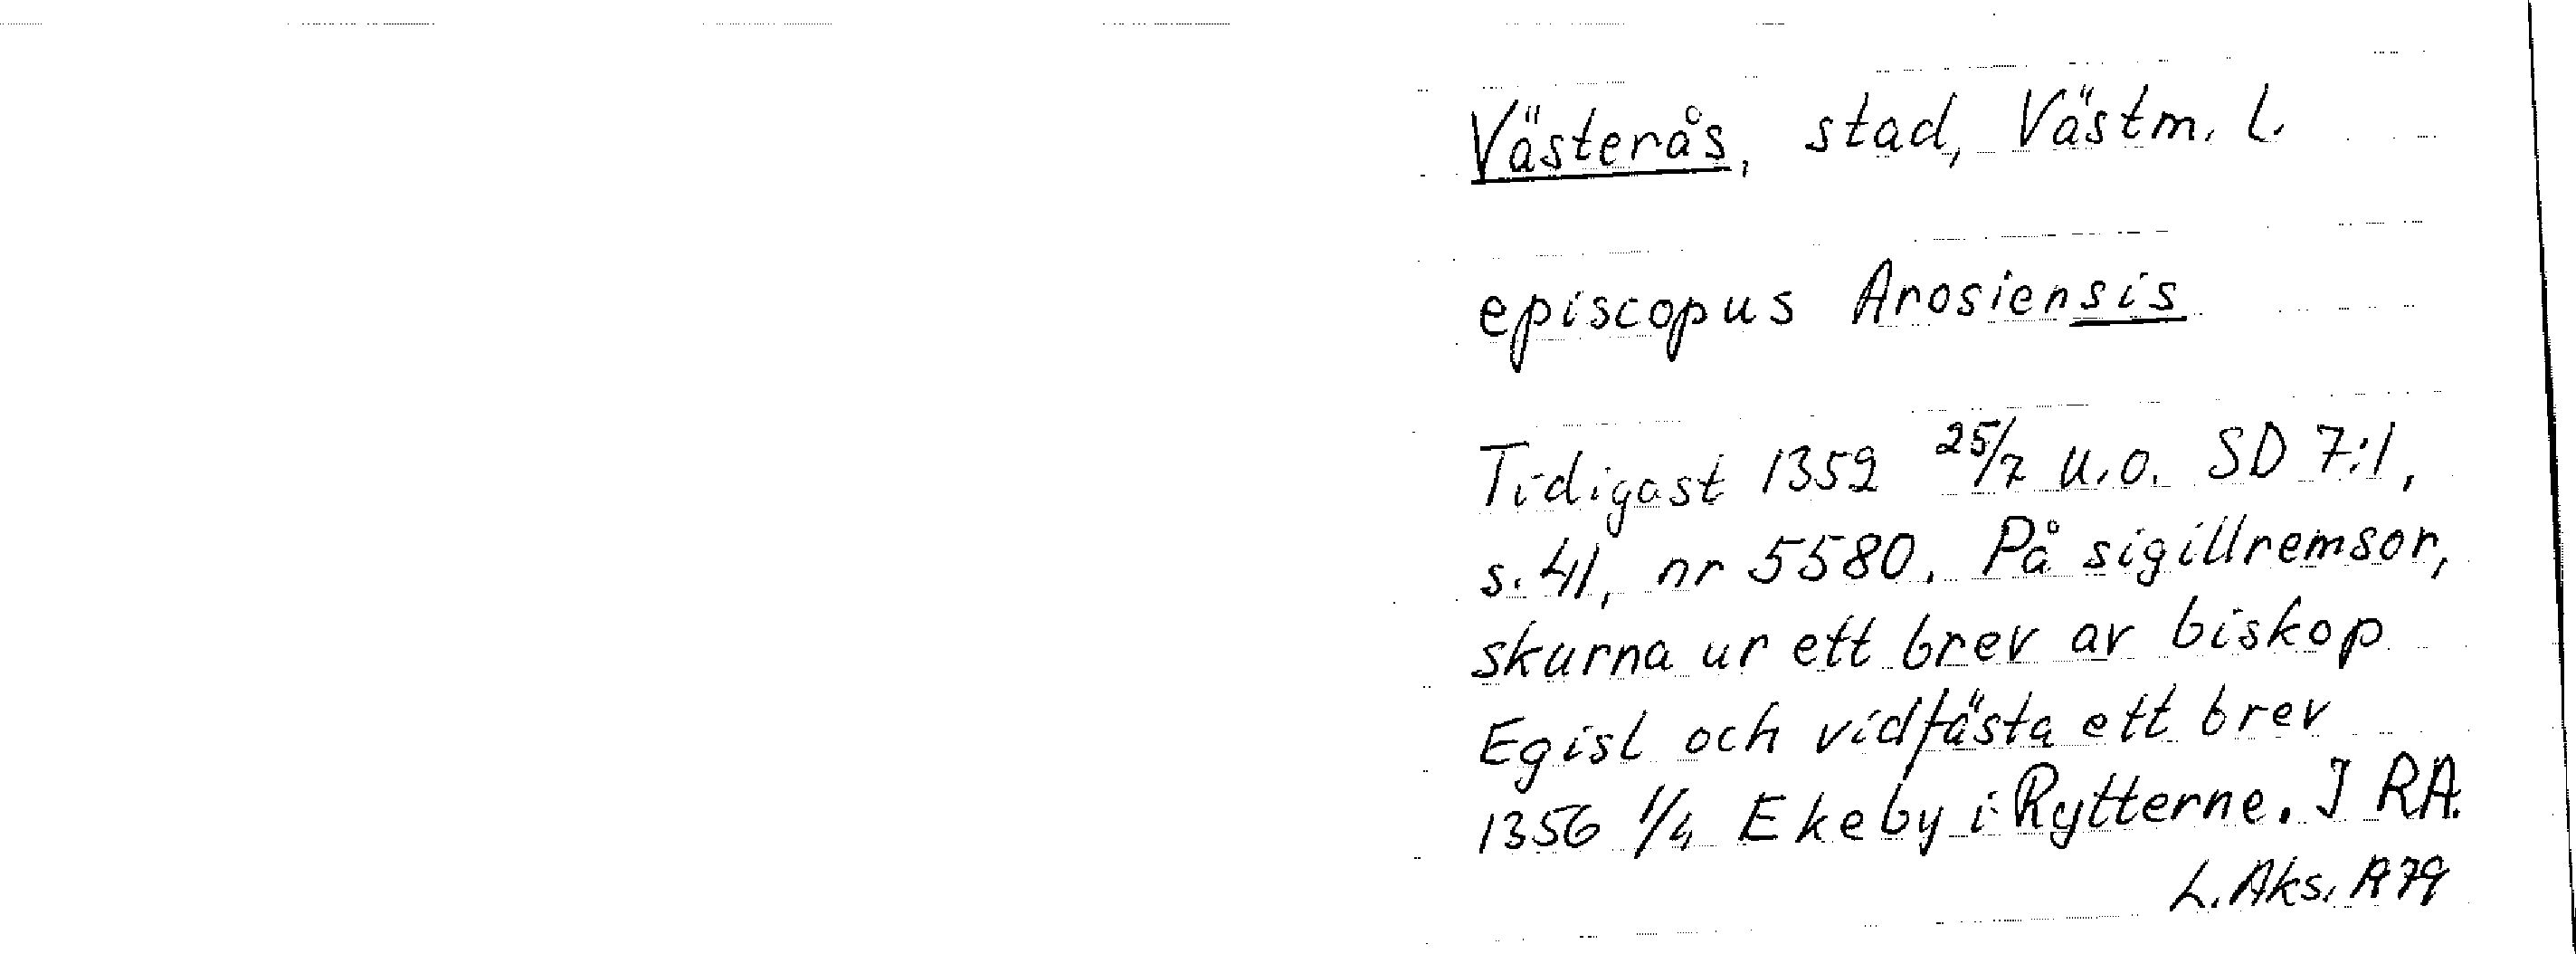 Västerås, stad, Västm. L.
episcopus Arosiensis
Tidigast 1352 25/7 u.o. SD 7:1,
s. 41, nr 5580. På sigillremsor,
skurna ur ett brev av biskop
Egisl och vidfästa ett brev
1356 1/4 Ekeby i Rytterne. I RA.
L. Aks. R79